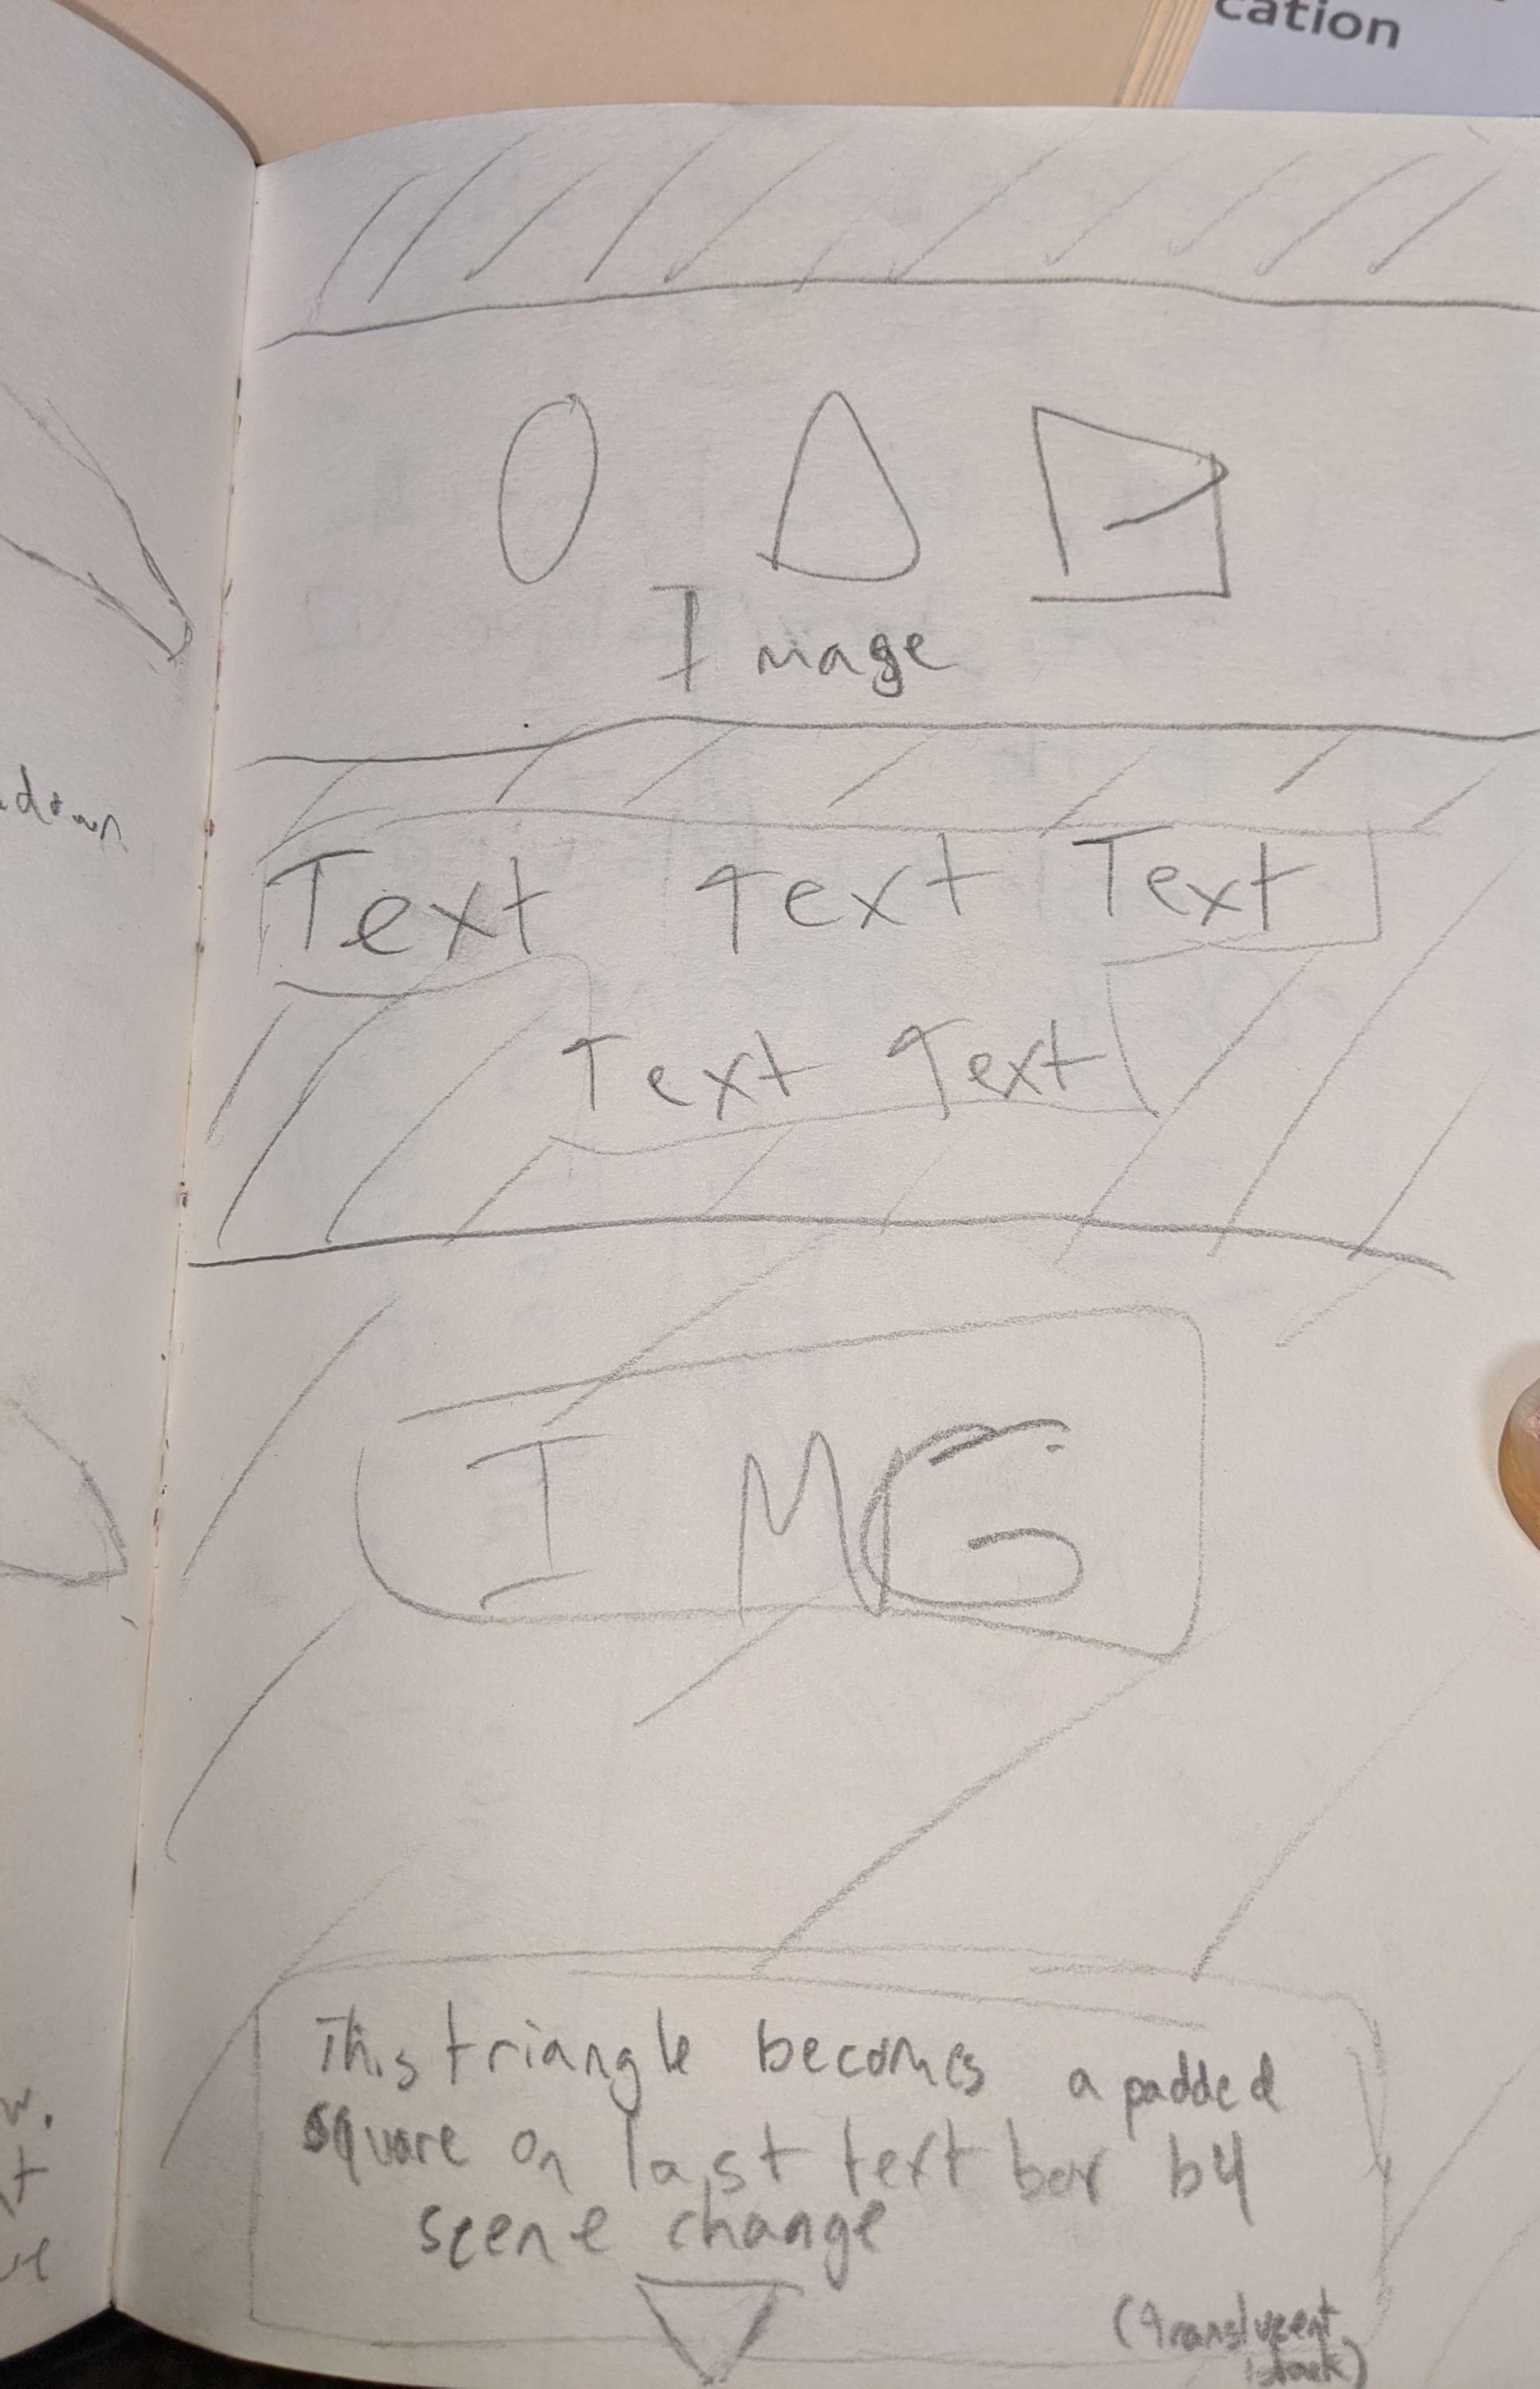 cation
Image
Text Text Text
Text Text
IMG
This triangle becomes a padded
square on last text box b4
scene change
(translucent
black)
down
w.